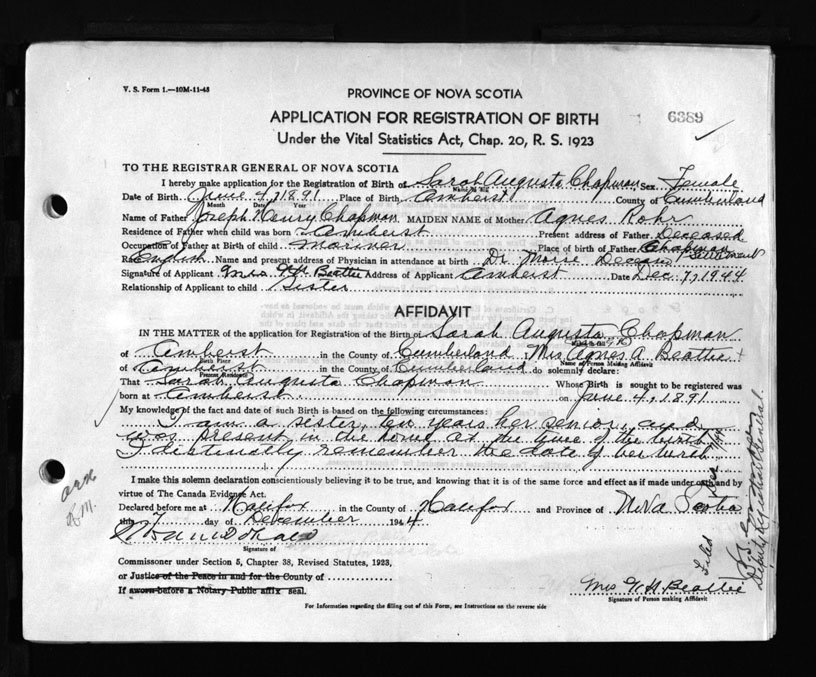 V. S. Form 1.—10M-11-43
PROVINCE OF NOVA SCOTIA
APPLICATION FOR REGISTRATION OF BIRTH
6389
Under the Vital Statistics Act, Chap. 20, R. S. 1923
TO THE REGISTRAR GENERAL OF NOVA SCOTIA
I hereby make application for the Registration of Birth of Sarah Augusta Chapman Sex Female
Date of Birth June 4, 1891 Place of Birth Amherst County of Cumberland
Month Date Year
Name of Father Joseph Henry Chapman MAIDEN NAME of Mother Agnes Rohr
Residence of Father when child was born Amherst Present address of Father Deceased
Occupation of Father at Birth of child Mariner Place of Birth of Father Chapman Settlement
Race English Name and present address of Physician in attendance at birth Dr Morse Deceased
Signature of Applicant Mrs W H Beattie Address of Applicant Amherst Date Dec 7, 1944
Relationship of Applicant to child Sister
AFFIDAVIT
IN THE MATTER of the application for Registration of the Birth of Sarah Augusta Chapman
of Amherst in the County of Cumberland Mrs Agnes A Beattie
Birth Place Name of Person Making Affidavit
of Amherst in the County of Cumberland do solemnly declare:
Present Residence
That Sarah Augusta Chapman Whose Birth is sought to be registered was
born at Amherst on June 4, 1891
My knowledge of the fact and date of such Birth is based on the following circumstances:
I am a sister, ten years her senior, and
was present in the house at the time of the birth
I distinctly remember the date of her birth
I make this solemn declaration conscientiously believing it to be true, and knowing that it is of the same force and effect as if made under oath and by
virtue of The Canada Evidence Act.
Declared before me at Halifax in the County of Halifax and Province of Nova Scotia
this day of December 1944
Signature of
Commissioner under Section 5, Chapter 38, Revised Statutes, 1923,
or Justice of the Peace in and for the County of
If sworn before a Notary Public affix seal.
Mrs W H Beattie
Signature of Person making Affidavit
For Information regarding the filling out of this Form, see Instructions on the reverse side
Filed Dec
Deputy Registrar General